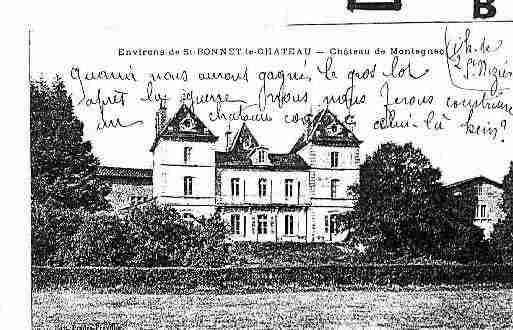 B
Environs de St-BONNET-le-CHATEAU — Château de Montagnac
Quand nous aurons gagné le gros lot
après la guerre nous nous ferons construire
un chateau comme celui-là hein?